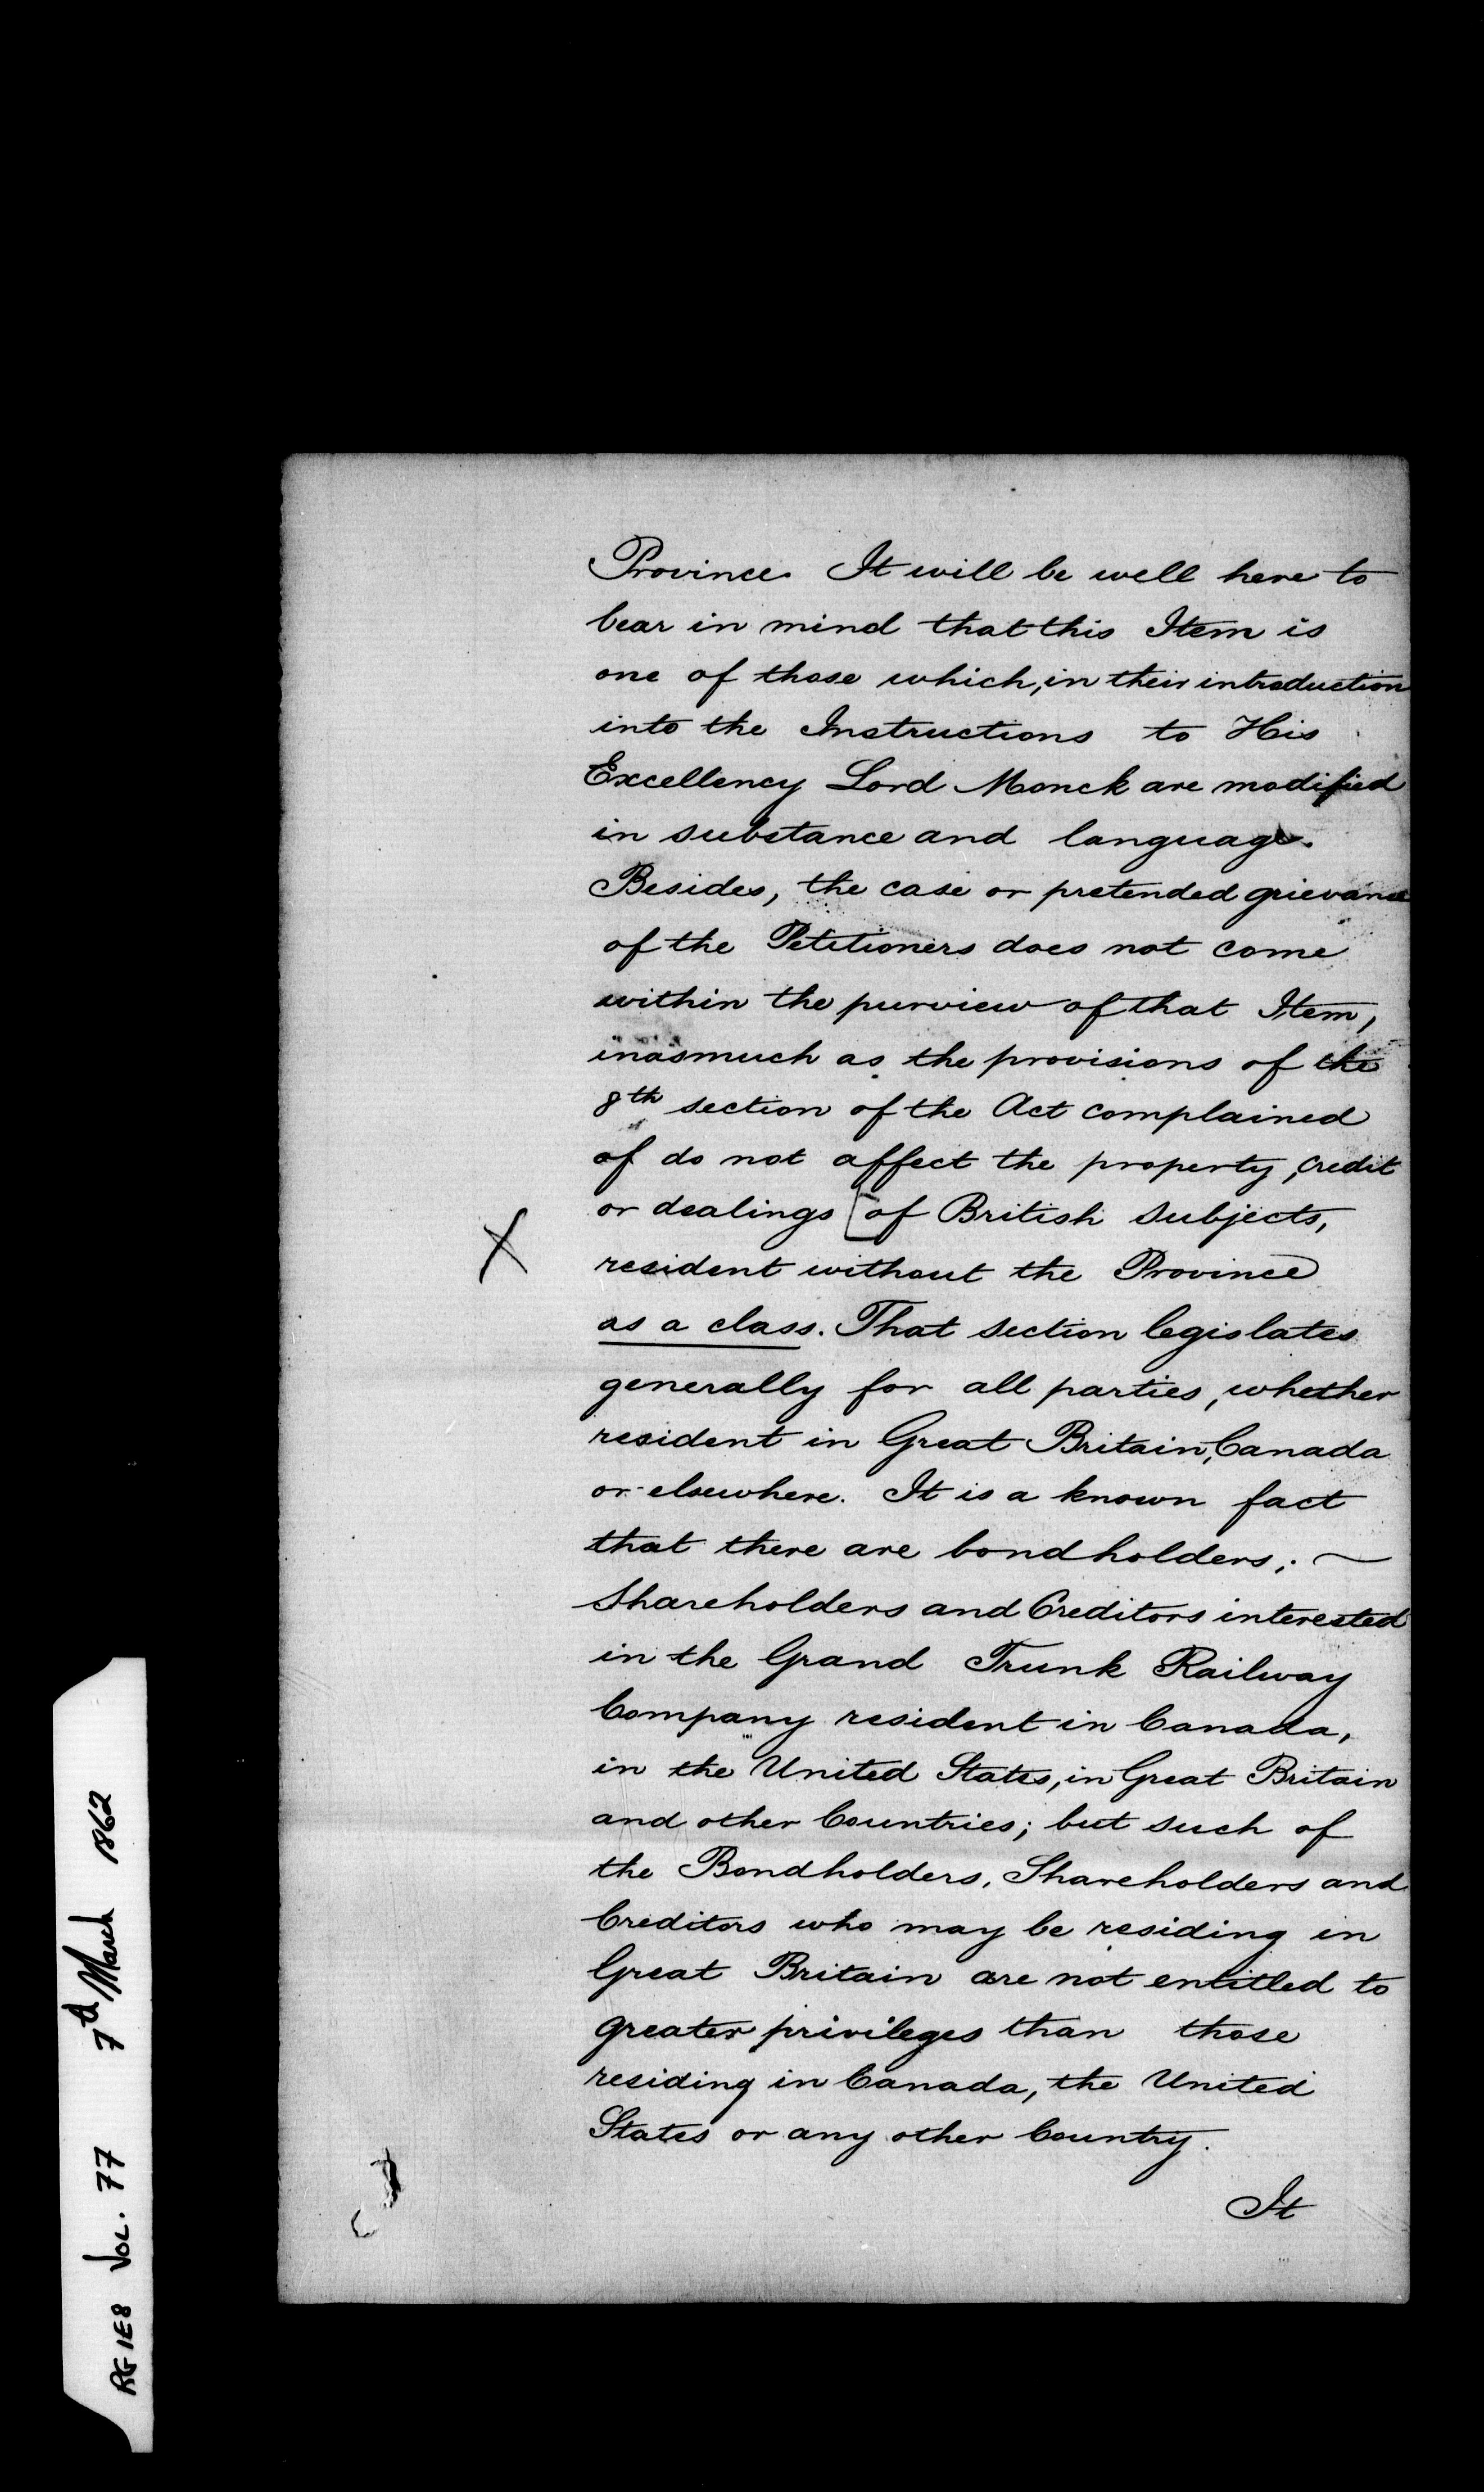 Province. It will be well here to
bear in mind that this Item is
one of those which, in their introduction
into the Instructions to His
Excellency Lord Monck are modified
in substance and language.
Besides, the case or pretended grievance
of the Petitioners does not come
within the purview of that Item,
inasmuch as the provisions of the
8th section of the Act complained
of do not affect the property, credit
or dealings [of British subjects,
X
resident without the Province
as a class. That section legislates
generally for all parties, whether
resident in Great Britain, Canada
or elsewhere. It is a known fact
that there are bondholders; ~
Shareholders and Creditors interested
in the Grand Trunk Railway
Company resident in Canada,
in the United States, in Great Britain
and other Countries; but such of
the Bondholders, Shareholders and
Creditors who may be residing in
Great Britain are not entitled to
greater privileges than those
residing in Canada, the United
States or any other Country.
It
RG 1E8 VOL. 77 7th March 1862